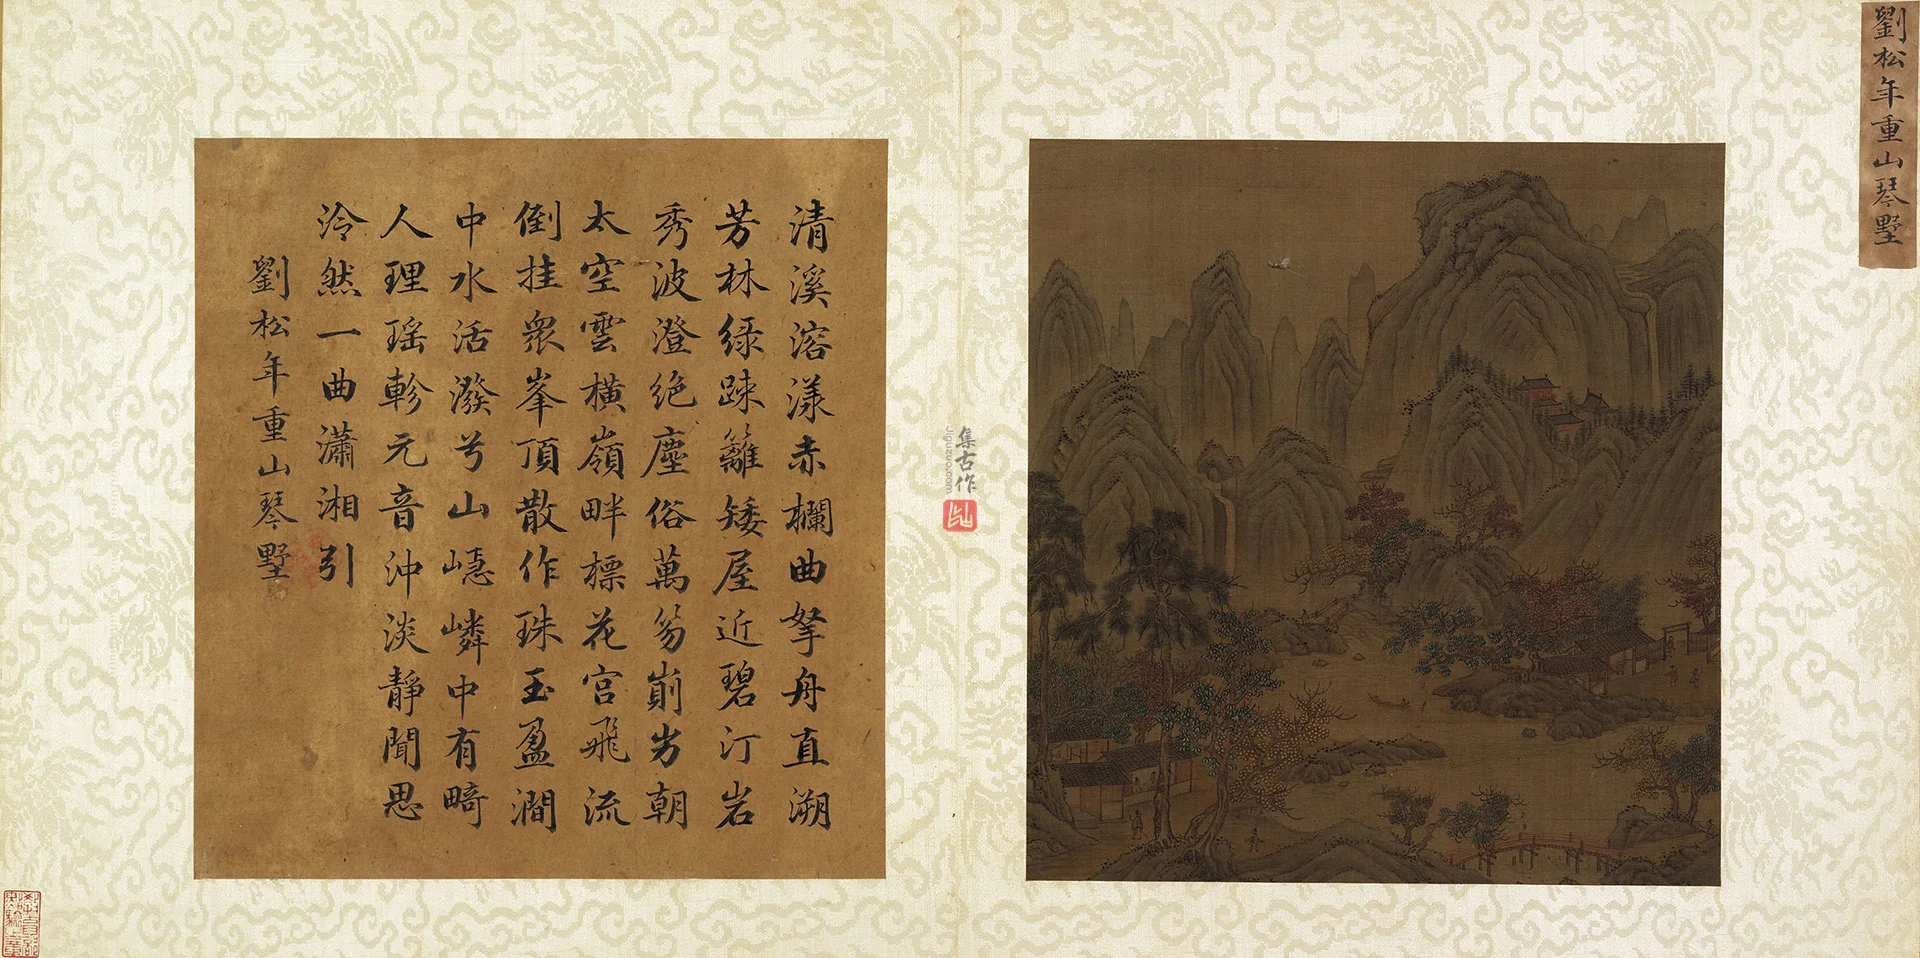 劉松年重山琴墅
清溪溶漾赤欄曲拏舟直溯
芳林緑踈籬矮屋近碧汀岩
秀波澄絶塵俗萬笏崱屴朝
太空雲橫嶺畔標花宮飛流
倒挂衆峯頂散作珠玉盈澗
中水活潑兮山嶾嶙中有畸
人理瑶軫元音沖淡靜聞思
泠然一曲瀟湘引
劉松年重山琴墅
集古作
Jiguzuo.com